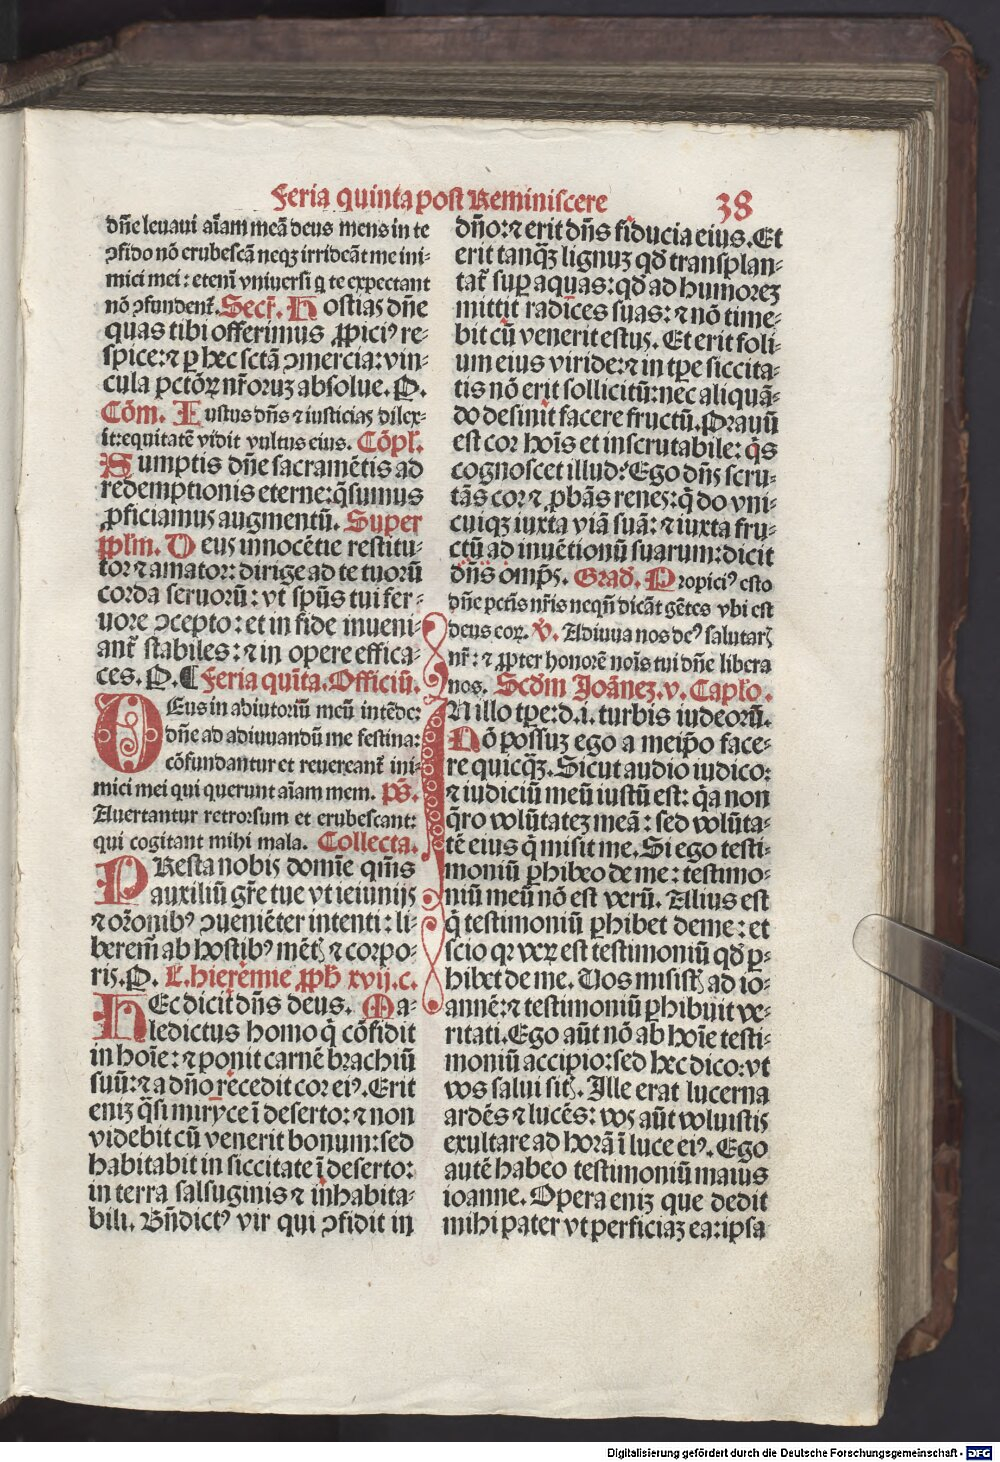 Feria quinta post Reminiscere 38
dñe leuaui aĩam meã deus meus in te
ꝯfido nõ erubescã neqꝫ irrideãt me ini-
mici mei: eteni͂ vniuersi q̃ te expectant
nõ ꝯfundent᷑. Secr̃. Hostias dñe
quas tibi offerimus ꝓpiciꝰ re-
spice: ⁊ ꝑ hec sctã ꝯmercia: vin-
cula pctõꝝ nr̃oruꝫ absolue. P.
Cõm. Iustus dñs ⁊ iusticias dilex-
it: equitatẽ vidit vultus eius. Cõpl̃.
Sumptis dñe sacramẽtis ad
redemptionis eterne: q̃sumus
ꝓficiamus augmentũ. Super
ppl̃m. Deus innocẽtie restitu-
tor ⁊ amator: dirige ad te tuorũ
corda seruorũ: vt spũs tui fer-
uore ꝯcepto: et in fide inueni-
ant᷑ stabiles: ⁊ in opere effica-
ces. P. ¶ Feria quĩta. Officiũ.
DEus in adiutoriũ meũ intẽde:
dñe ad adiuuandũ me festina:
cõfundantur et reuereant᷑ ini-
mici mei qui querunt aĩam mem. ps̃.
Auertantur retrorsum et erubescant:
qui cogitant mihi mala. Collecta.
PResta nobis domĩe qm̃s
auxiliũ gr̃e tue vt ieiunijs
⁊ or̃onibꝰ ꝯueniẽter intenti: li-
beremͥ ab hostibꝰ mẽtꝭ ⁊ corpo-
ris. P. L. hieremie ꝓph̃ xvij. c.
HEc dicit dñs deus. Ma-
ledictus homo q̃ cõfidit
in hoĩe: ⁊ ponit carnẽ brachiũ
suũ: ⁊ a dño recedit cor eiꝰ. Erit
eniꝫ q̃si miryce ĩ deserto: ⁊ non
videbit cũ venerit bonum: sed
habitabit in siccitate ĩ deserto:
in terra salsuginis ⁊ inhabita-
bili. Bñdictꝰ vir qui ꝯfidit in
dño: ⁊ erit dñs fiducia eius. Et
erit tanq̃ꝫ lignuꝫ qd̃ transplan-
tat᷑ sup aquas: qd̃ ad humoreꝫ
mittit radices suas: ⁊ nõ time-
bit cũ venerit estus. Et erit foli-
um eius viride: ⁊ in tp̃e siccita-
tis nõ erit sollicitũ: nec aliquã-
do desinit facere fructũ. Prauũ
est cor hoĩs et inscrutabile: q̃s
cognoscet illud? Ego dñs scru-
tãs cor ⁊ ꝓbãs renes: q̃ do vni-
cuiqꝫ iuxta viã suã: ⁊ iuxta fru-
ctũ ad inuẽtionũ suarum: dicit
dñs omp̃s. Grad̃. Propiciꝰ esto
dñe pctĩs nr̃is neqñ dicãt gẽtes vbi est
deus eoꝝ. ℣. Adiuua nos deꝰ salutarꝭ
nr̃: ⁊ ꝓpter honorẽ noĩs tui dñe libera
nos. Scd̃m Joãneꝫ. v. Capl̃o.
IN illo tp̃e: d. i. turbis iudeorũ.
Nõ possuꝫ ego a meip̃o face-
re quicq̃ꝫ. Sicut audio iudico:
⁊ iudiciũ meũ iustũ est: q̃a non
q̃ro volũtateꝫ meã: sed volũta-
tẽ eius q̃ misit me. Si ego testi-
moniũ ꝑhibeo de me: testimo-
niũ meũ nõ est verũ. Alius est
q̃ testimoniũ ꝑhibet de me: et
scio qꝛ veꝝ est testimoniũ qd̃ ꝑ-
hibet de me. Vos misistꝭ ad io-
annẽ: ⁊ testimoniũ ꝑhibuit ve-
ritati. Ego aũt nõ ab hoĩe testi-
moniũ accipio: sed hec dico: vt
vos salui sitꝭ. Ille erat lucerna
ardẽs ⁊ lucẽs: vos aũt voluistis
exultare ad horã ĩ luce eiꝰ. Ego
autẽ habeo testimoniũ maius
ioanne. Opera eniꝫ que dedit
mihi pater vt perficiaꝫ ea: ipsa
Digitalisierung gefördert durch die Deutsche Forschungsgemeinschaft - DFG